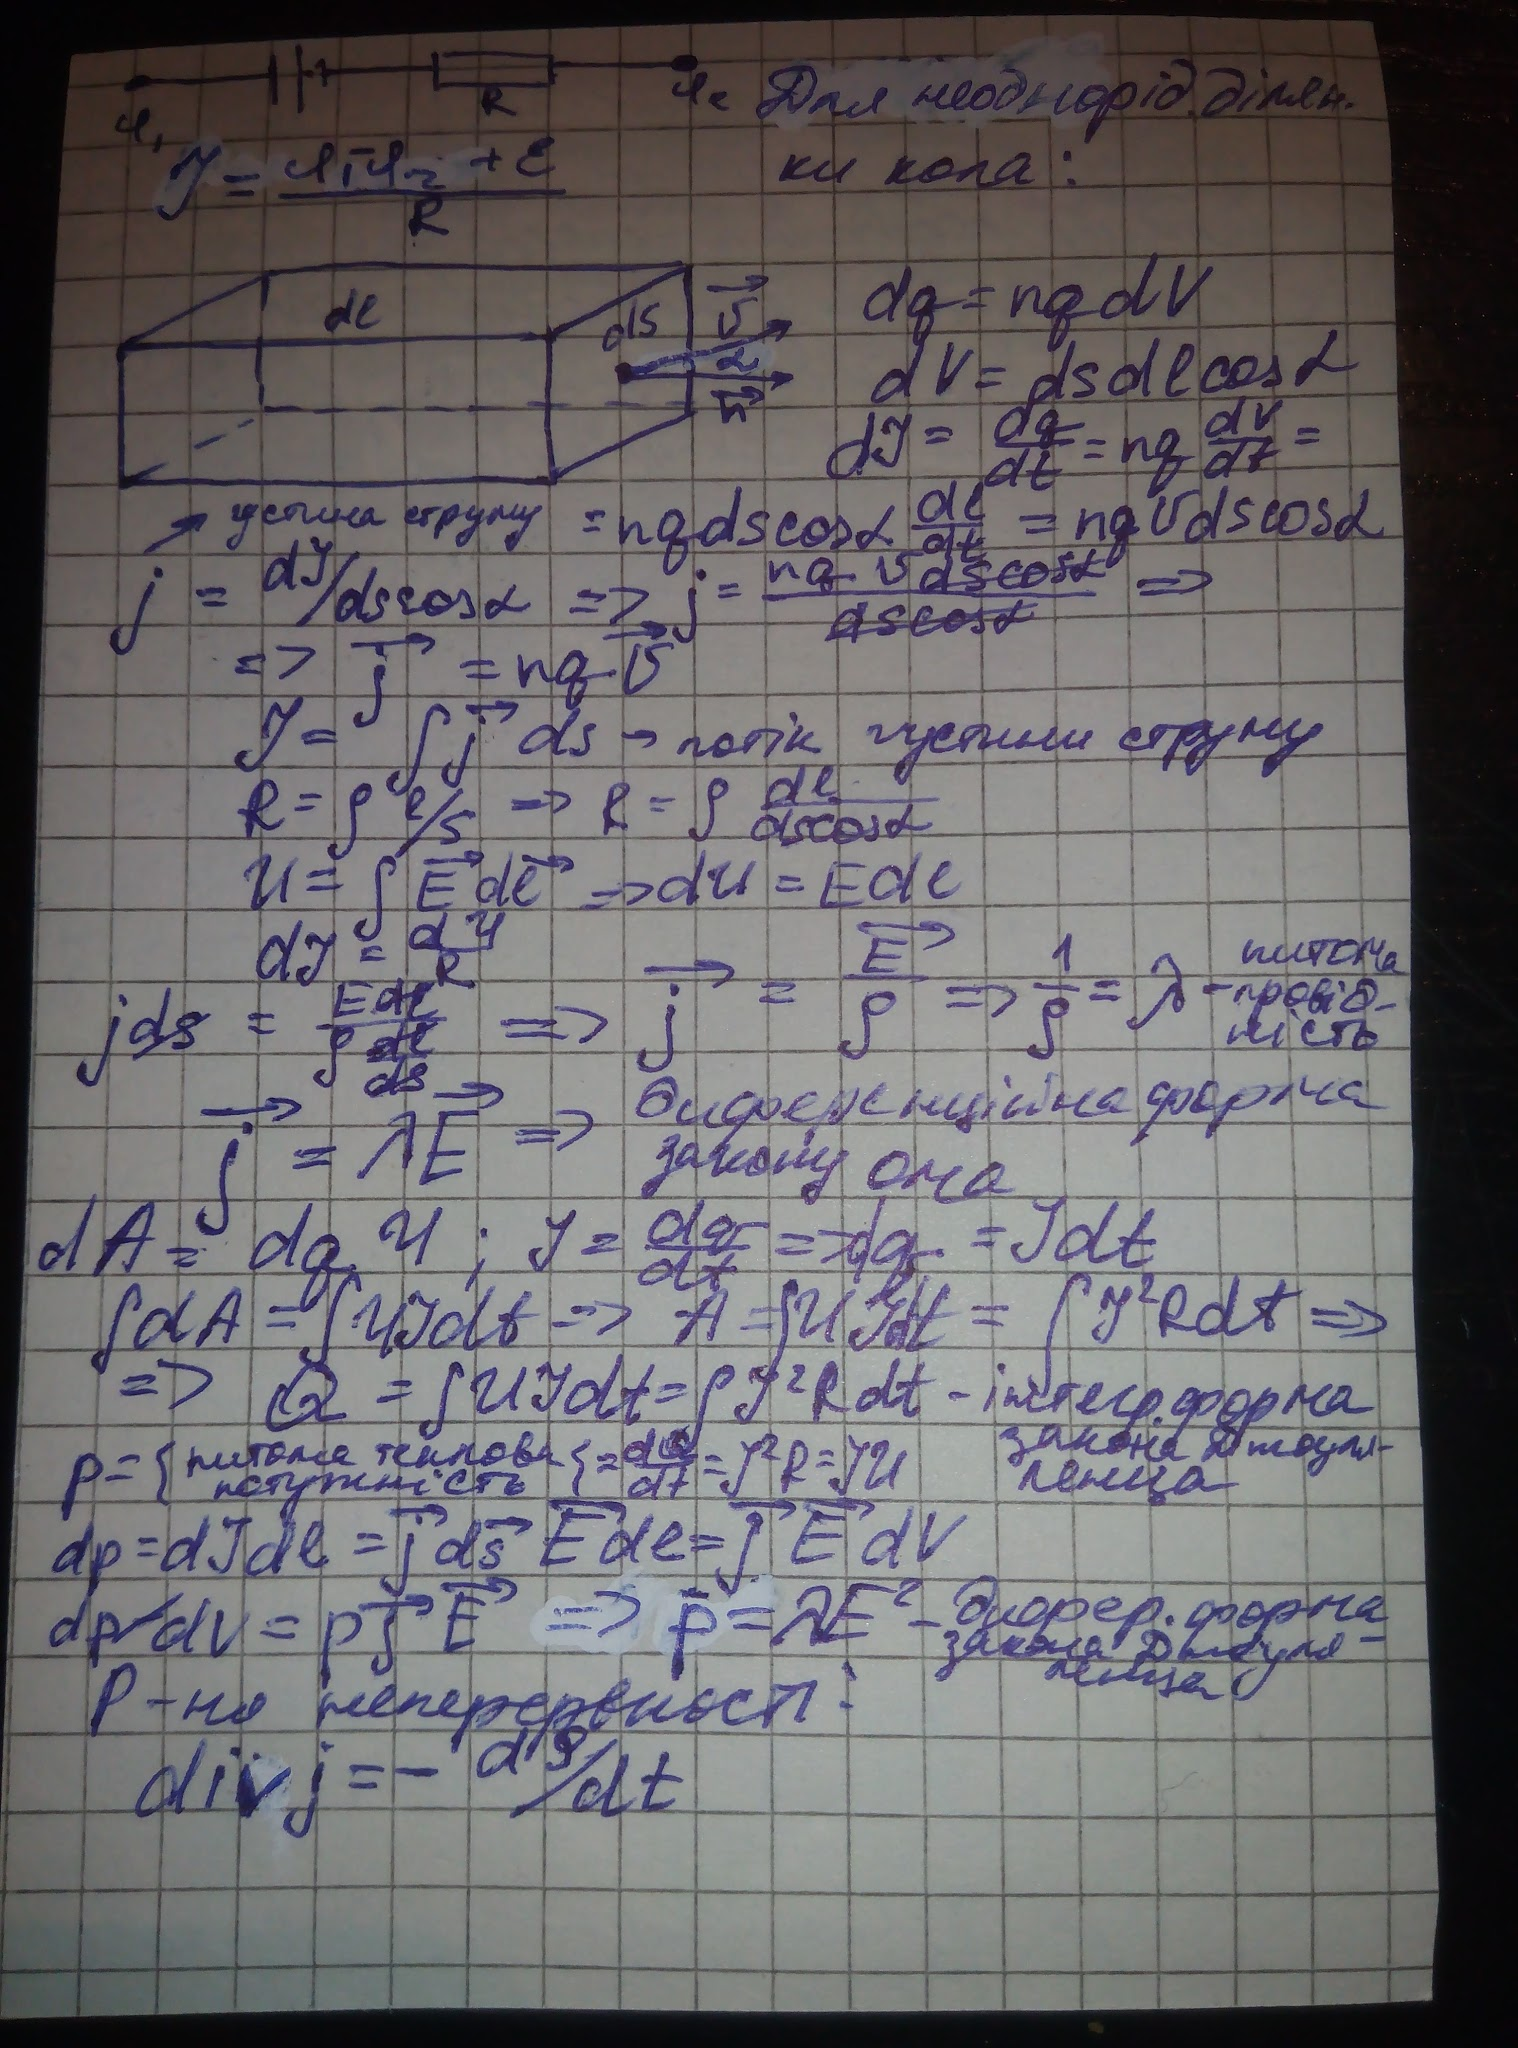 φ₁ R φ₂ Для неоднорід. ділян-
ки кола:
J = φ₁-φ₂ + ε / R
dl dS v⃗ α n⃗
dq = nqdV
dV = dsdlcosα
dJ = dq/dt = nq dV/dt =
густина струму = nqdscosα dl/dt = nqvdscosα
j = dJ/dscosα => j = nqvdscosα/dscosα =>
=> j⃗ = nqv⃗
J = ∫j⃗ ds - потік густини струму
R = ρ l/S => R = ρ dl/dscosα
U = ∫E⃗dl⃗ => dU = Edl
dJ = dU/R
jds = Edl/ρ dl/ds => j⃗ = E⃗/ρ => 1/ρ = λ - питома провід-ність
j⃗ = λE⃗ => диференційна форма
закону ома
dA = dq U ; J = dq/dt => dq = Jdt
∫dA = ∫UJdt => A = ∫UJdt = ∫J²Rdt =>
=> Q = ∫UJdt = ∫J²Rdt - інтегр. форма
закона Джоуля-
ленца
p = { питома теплова потужність { = dQ/dt = J²R = JU
dp = dJdl = j⃗ds⃗ E⃗dl = j⃗ E⃗ dV
dp/dV = pj⃗E⃗ => p̄ = λE² - дифер. форма
закона Джоуля-
ленца
Р-ня неперервності:
div j = - dρ/dt